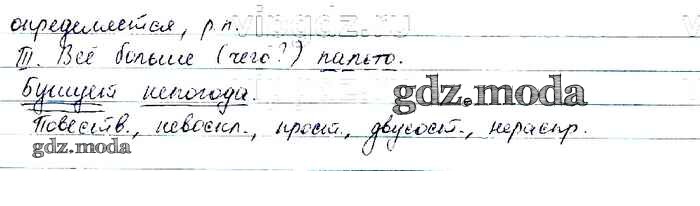 определяется, р.п.
III. Всё больше (чего?) пальто.
Бушует непогода.
gdz.moda
Повеств., невоскл., прост., двусост., нераспр.
gdz.moda